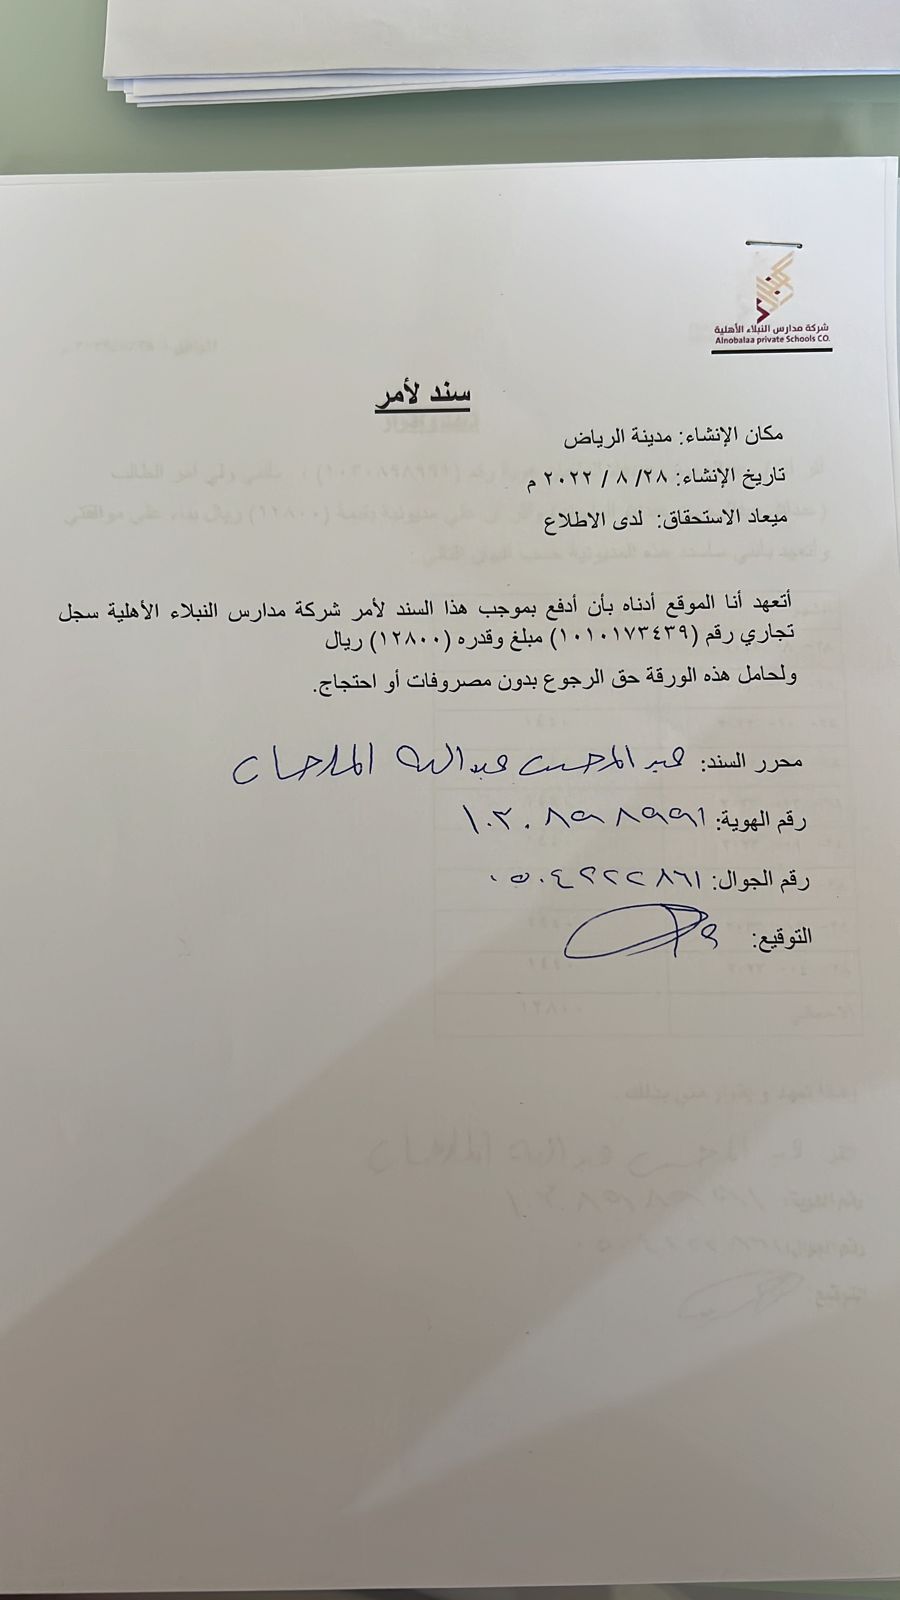 شركة مدارس النبلاء الأهلية
Alnobalaa private Schools CO.
سند لأمر
مكان الإنشاء: مدينة الرياض
تاريخ الإنشاء: ٢٨/ ٨ / ٢٠٢٢ م
ميعاد الاستحقاق: لدى الاطلاع
أتعهد أنا الموقع أدناه بأن أدفع بموجب هذا السند لأمر شركة مدارس النبلاء الأهلية سجل
تجاري رقم (١٠١٠١٧٣٤٣٩) مبلغ وقدره (١٢٨٠٠) ريال
ولحامل هذه الورقة حق الرجوع بدون مصروفات أو احتجاج.
محرر السند: عبد المحسن عبدالله الملحان
رقم الهوية: ١٠٣٠٨٩٨٩٩١
رقم الجوال: ٠٥٠٤٢٢٢٨٦١
التوقيع: